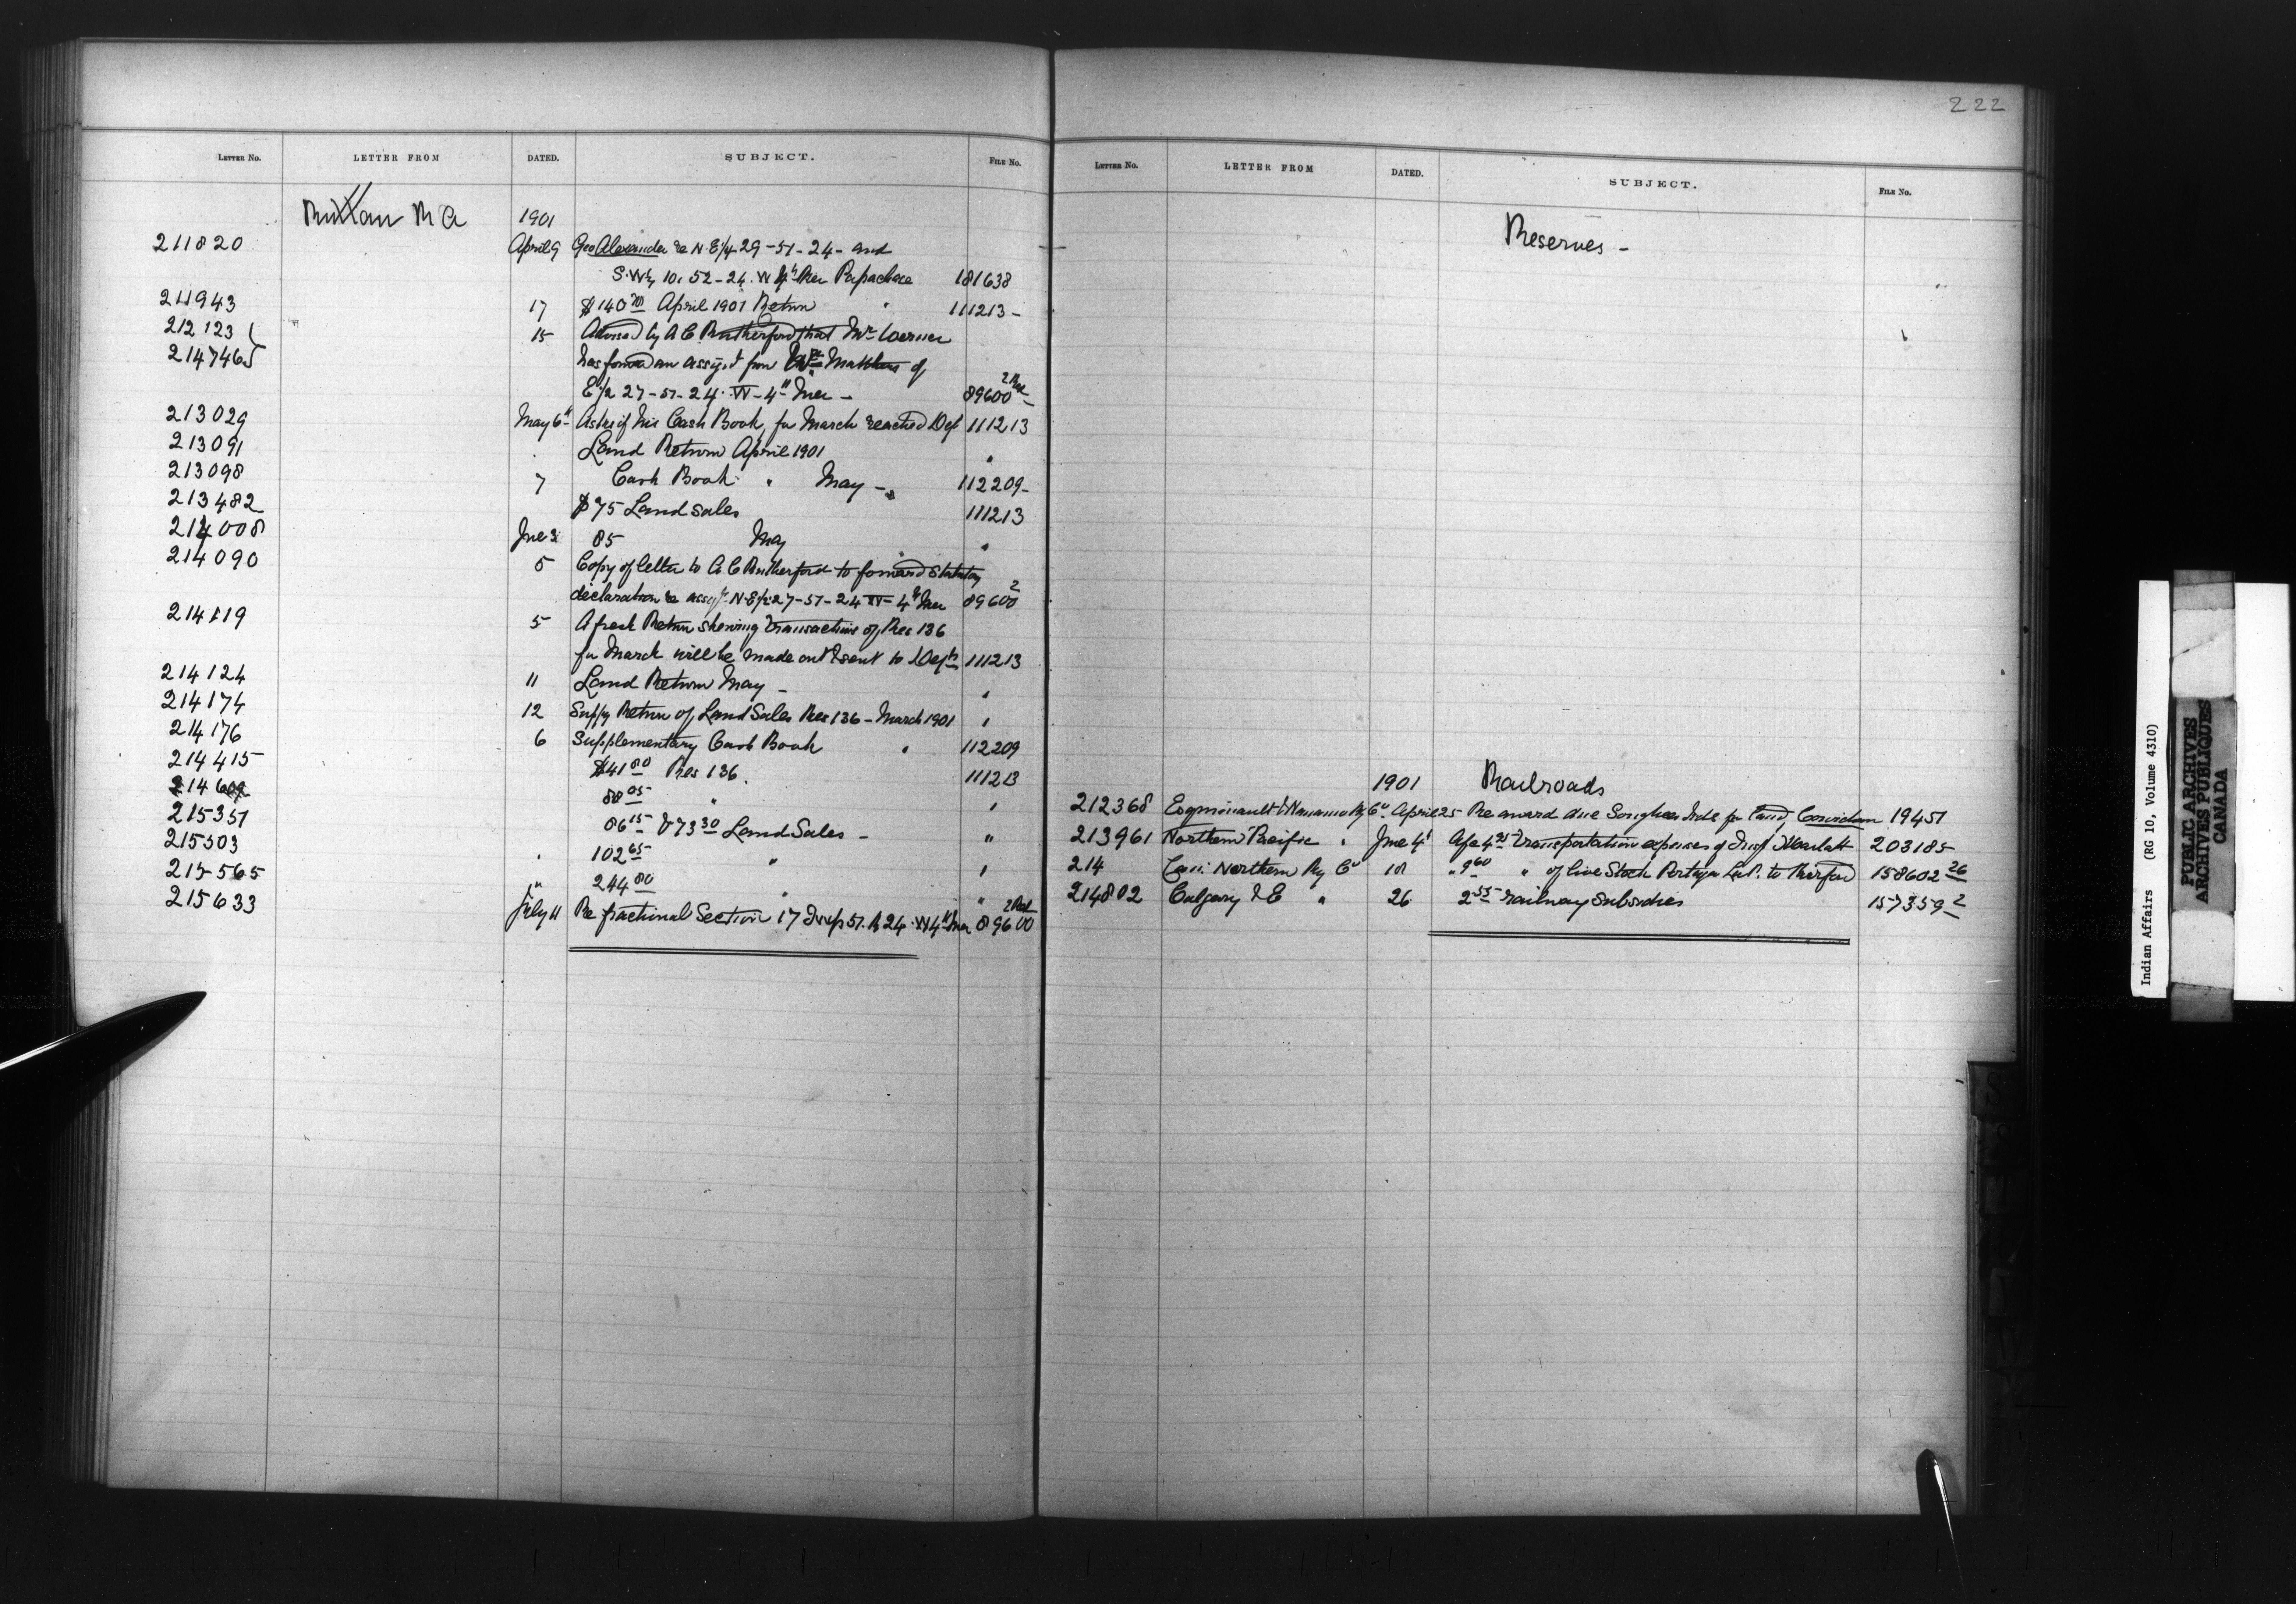 222
LETTER NO. LETTER FROM DATED. SUBJECT. FILE NO.
Ruttan R A 1901
211820 April 9 Geo Alexander re N.E 1/4 29-51-24- and
S.W 1/4 10. 52-24. W 4th Mer Papachase 181638
211943 17 $140 00 April 1901 Return " 111213-
212123 15 Advised by A C Rutherford that Mr Werner
214746 has forwd an assigt from Wm Matthews of
E 1/2 27-51-24. W-4th Mer - 89600 2
213029 May 6th Asks if his Cash Book for March reached Dept 111213
213091 Land Return April 1901 "
213098 7 Cash Book " May - 112209-
213482 $75 Land Sales 111213
214008 June 3 85 May "
214090 5 Copy of letter to A C Rutherford to forward Statutory
declaration re assgt N.E 1/2 27-51-24 W-4th Mer 89600 2
214119 5 A fresh Return shewing transactions of Res 136
for March will be made out & sent to Dept 111213
214124 11 Land Return May - "
214174 12 Suppy Return of Land Sales Res 136 - March 1901 "
214176 6 Supplementary Cash Book " 112209
214415 $41 80 Res 136. 111213
214609 88 05 " "
215351 86 15 & 73 30 Land Sales - "
215503 102 65 " "
215565 " 244 80 " "
215633 July 11 Re fractional Section 17 Twp 51. R 24. W 4th Mer 89600 2
LETTER NO. LETTER FROM DATED. SUBJECT. FILE NO.
Reserves -
1901 Railroads
212368 Esquimault & Nanaimo Ry Co. April 25 Re award due Songhees Inds for land, Cowichan 19451
213961 Northern Pacific " June 4th Transportation expenses of 203185
214 Can. Northern Ry Co 18 " 9 60 " of live Stock Portage 158602 26
214802 Calgary & E " 26 2 55 railway Subsidies 157359 2
Indian Affairs (RG 10, Volume 4310)
PUBLIC ARCHIVES
ARCHIVES PUBLIQUES
CANADA